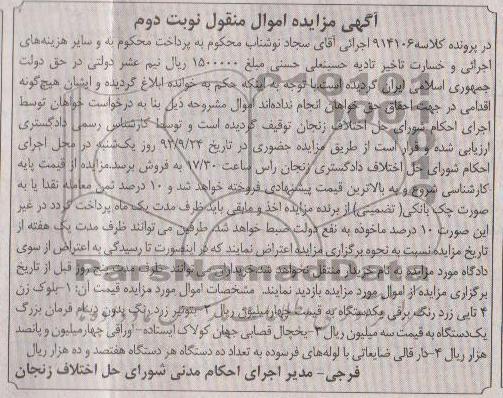 آگهی مزایده اموال منقول نوبت دوم
در پرونده کلاسه ۹۱۴۱۰۶ اجرائی آقای سجاد نوشتاب محکوم به پرداخت محکوم به و سایر هزینه‌های
اجرائی و خسارت تاخیر تادیه حسنعلی حسنی مبلغ ۱۵۰۰۰۰۰ ریال نیم عشر دولتی در حق دولت
جمهوری اسلامی ایران گردیده است با توجه به اینکه حکم به خوانده ابلاغ گردیده و ایشان هیچ‌گونه
اقدامی در جهت احقاق حق خواهان انجام نداده‌اند اموال مشروحه ذیل بنا به درخواست خواهان توسط
اجرای احکام شورای حل اختلاف زنجان توقیف گردیده است و توسط کارشناس رسمی دادگستری
ارزیابی شده و قرار است از طریق مزایده حضوری در تاریخ ۹۲/۹/۲۴ روز یک‌شنبه در محل اجرای
احکام شورای حل اختلاف دادگستری زنجان راس ساعت ۱۷/۳۰ به فروش برسد.مزایده از قیمت پایه
کارشناسی شروع و به بالاترین قیمت پیشنهادی فروخته خواهد شد و ۱۰ درصد ثمن معامله نقدا یا به
صورت چک بانکی( تضمینی) از برنده مزایده اخذ و مابقی باید ظرف مدت یک ماه پرداخت گردد در غیر
این صورت ۱۰ درصد ماخوذه به نفع دولت ضبط خواهد شد. طرفین می توانند ظرف مدت یک هفته از
تاریخ مزایده نسبت به نحوه برگزاری مزایده اعتراض نمایند که در اینصورت تا رسیدگی به اعتراض از سوی
دادگاه مورد مزایده به نام خریدار منتقل نخواهد شد خریداران می توانند ظرف مدت پنج روز قبل از تاریخ
برگزاری مزایده از اموال مورد مزایده بازدید نمایند. مشخصات اموال مورد مزایده قیمت آن: ۱-بلوک زن
۴ تایی زرد رنگ برقی یک‌دستگاه به قیمت چهارمیلیون ریال ۲- زرد رنگ بدون دینام فرمان بزرگ
یک‌دستگاه به قیمت سه میلیون ریال ۳-یخچال قصابی جهان کولاک ایستاده-اوراقی چهارمیلیون و پانصد
هزار ریال ۴-دار قالی ضایعاتی با لوله‌های فرسوده به تعداد ده دستگاه هر دستگاه هفتصد و ده هزار ریال
فرجی- مدیر اجرای احکام مدنی شورای حل اختلاف زنجان